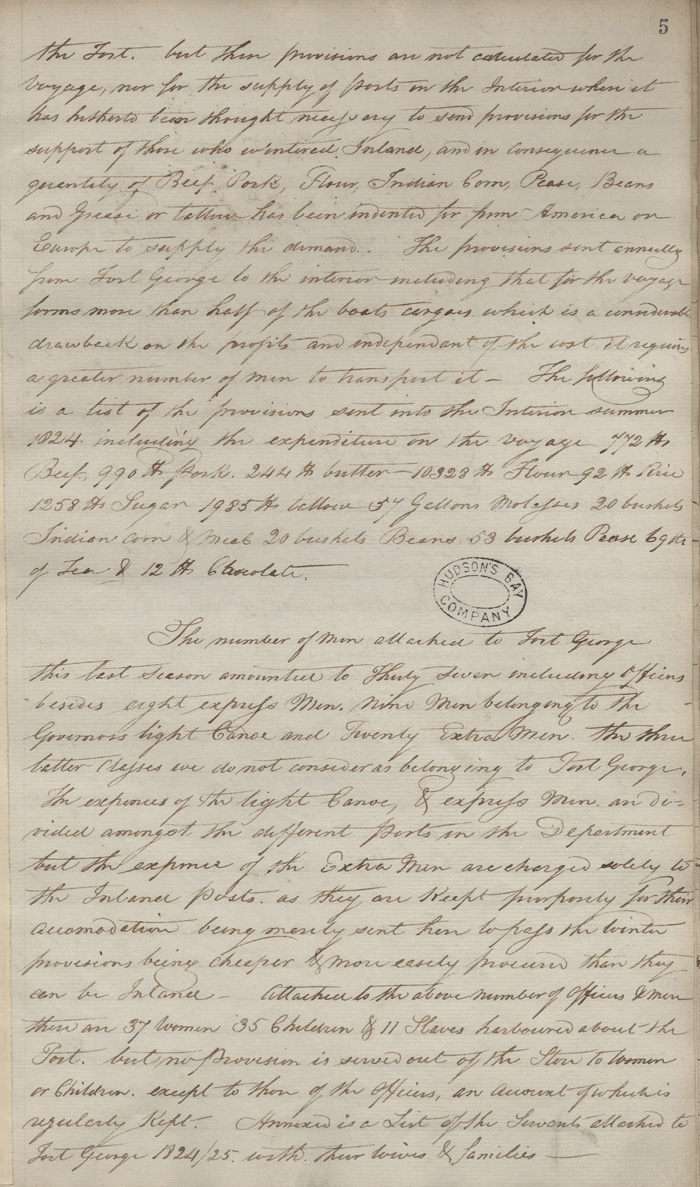 5
the Fort. but these provisions are not calculated for the
voyage, nor for the supply of posts in the Interior where it
has hitherto been thought necessary to send provisions for the
support of those who wintered Inland, and in consequence a
quantity of Beef, Pork, Flour, Indian Corn, Pease, Beans
and Grease or tallow has been indented for from America or
Europe to supply the demand. The provisions sent annually
from Fort George to the interior including that for the voyage
forms more than half of the boats cargoes which is a considerable
drawback on the profits and independent of the cost it requires
a greater number of men to transport it — The following
is a list of the provisions sent into the Interior summer
1824 including the expenditure on the voyage 772 lbs
Beef, 990 lb Pork. 244 lb butter — 10328 lb Flour 92 lb Rice
1258 lbs Sugar 1985 lb tallow 57 Gallons Molasses 20 bushels
Indian corn & Meal 20 bushels Beans 53 bushels Pease 69 lbs
of Tea & 12 lb Chocolate.
HUDSON'S BAY COMPANY
The number of Men attached to Fort George
this last Season amounted to Thirty Seven including Officers
besides eight express Men. Nine Men belonging to the
Governors light Canoe and Twenty Extra Men. the three
latter Classes we do not consider as belonging to Fort George.
The expences of the light Canoe, & express Men. are di-
vided amongst the different posts in the Department
but the expence of the Extra Men are charged solely to
the Inland posts. as they are Kept purposely for their
accomodation being merely sent here to pass the winter
provisions being cheaper & more easily procured than they
can be Inland — Attached to the above number of Officers & men
there are 37 Women 35 Children & 11 Slaves harboured about the
Fort. but no Provision is served out of the Store to Women
or Children. except to those of the Officers, an account of which is
regularly Kept. Annexed is a List of the Servants attached to
Fort George 1824/25. with their wives & families —